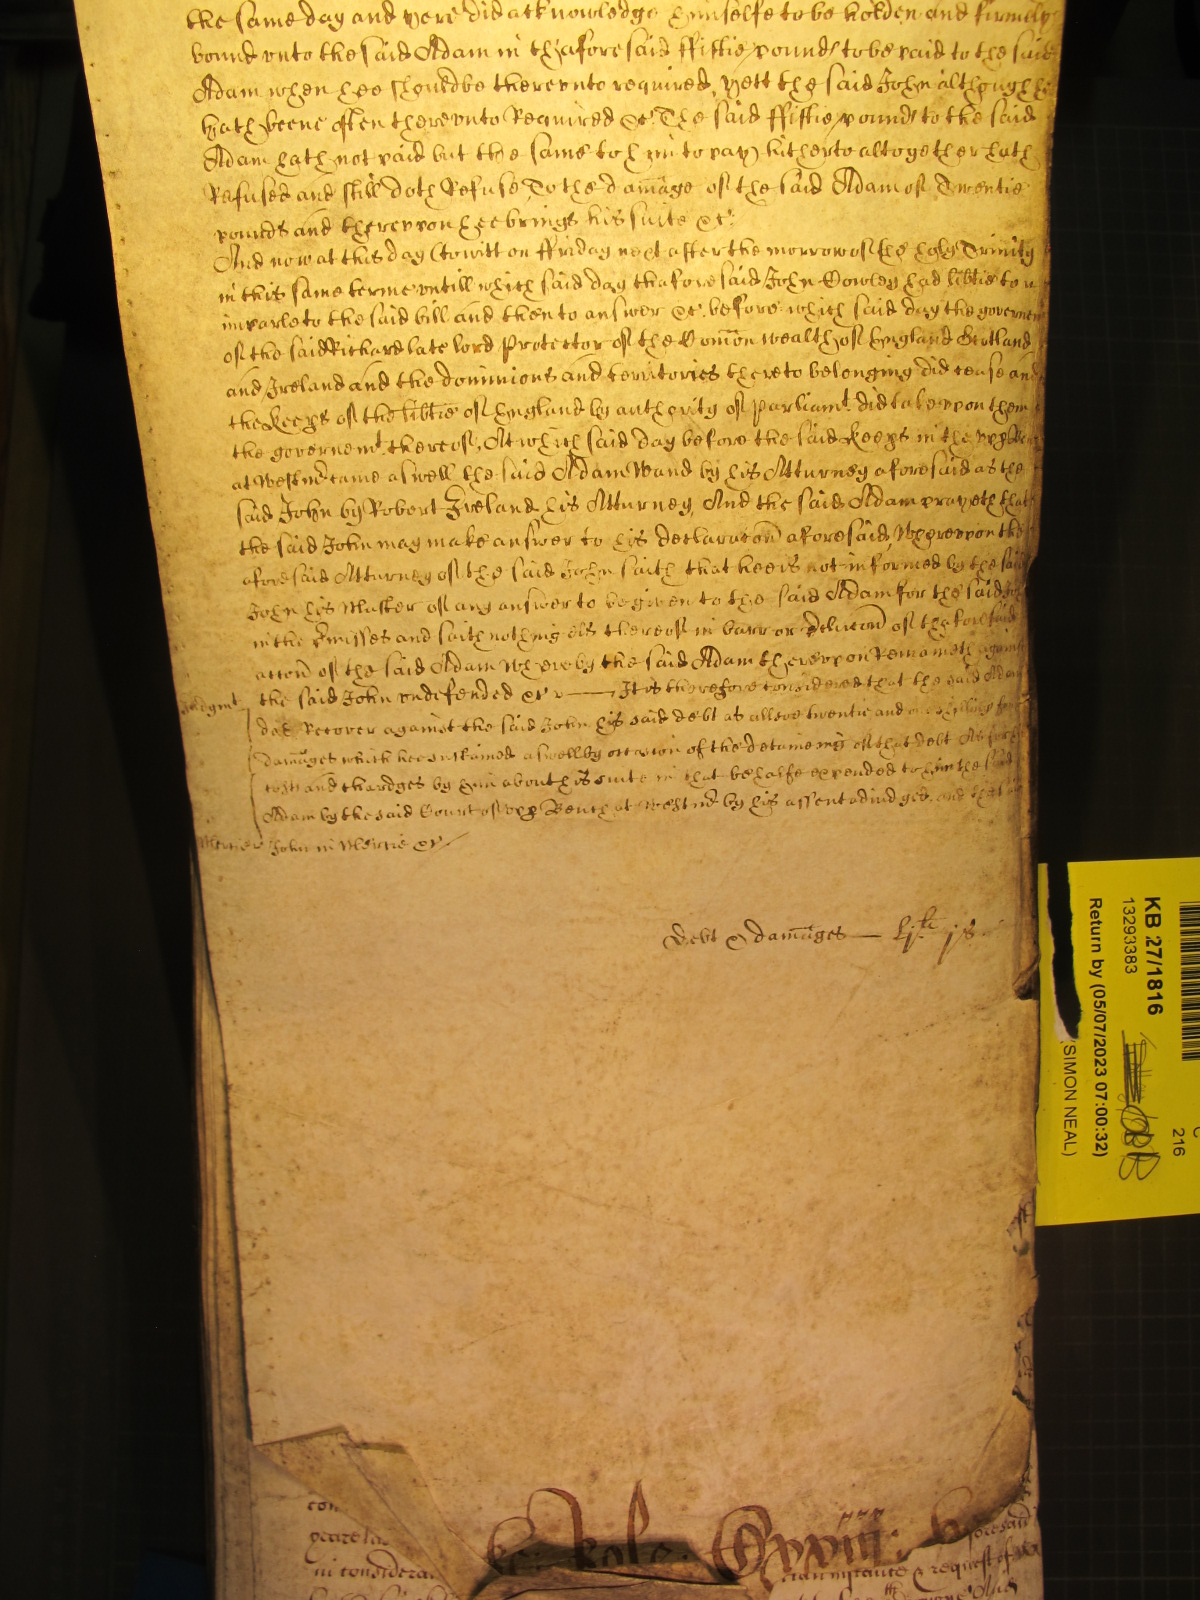 the same day and yere did acknowledge himselfe to be holden and firmely
bound vnto the said Adam in thaforesaid ffiftie pound to be paid to the said
Adam when hee should be therevnto required, yett the said John although hee
hath beene often therevnto Required &c. The said ffiftie pound to the said
Adam hath not paid but the same to him to pay hitherto altogether hath
Refused and still doth Refuse, To the damage of the said Adam of Twentie
pounds and therevpon hee brings his suite &c.
And now at this day (to witt on ffriday next after the morrow of the holy Trinity
in this same terme vntill which said day thaforesaid John Cowley had libtie to
imparle to the said bill and then to answer &c. before which said day the governem
of the said Richard late lord Protector of the Comon wealth of England Scotland
and Ireland and the dominions and territories thereto belonging did cease and
the Keeps of the libtie of England by authority of parliamt. did take vpon them
the governemt. thereof, At which said day before the said Keeps in the vpp
at Westmr came aswell the said Adam Wand by his Atturney aforesaid as the
said John by Robert Ireland his Atturney, And the said Adam prayeth that
the said John may make answer to his declaracon aforesaid, Wherevpon the
aforesaid Atturney of the said John saith that hee is not informed by the said
John his Master of any answer to be given to the said Adam for the said John
in the pmisses and saith nothing els thereof in barr or of thaforesaid
accon of the said Adam Whereby the said Adam therevpon Remaineth against
Judgmt the said John vndefended &c — It is therefore considered that the said Adam
doe Recover against the said John his said debt as alsoe twentie and one shillings for
damages which hee sustained aswell by occasion of the deteineing of that debt As for
costs and chardges by him about his suite in that behalfe expended to him the said
Adam by the said Court of vpp Bench at Westmr by his assent adiudged. and that
Mercie John in Mercie &c
Debt & damages — lj li js
KB 27/1816
13293383
Return by (05/07/2023 07:00:32)
(SIMON NEAL)
216
con
in considera
instance & request of